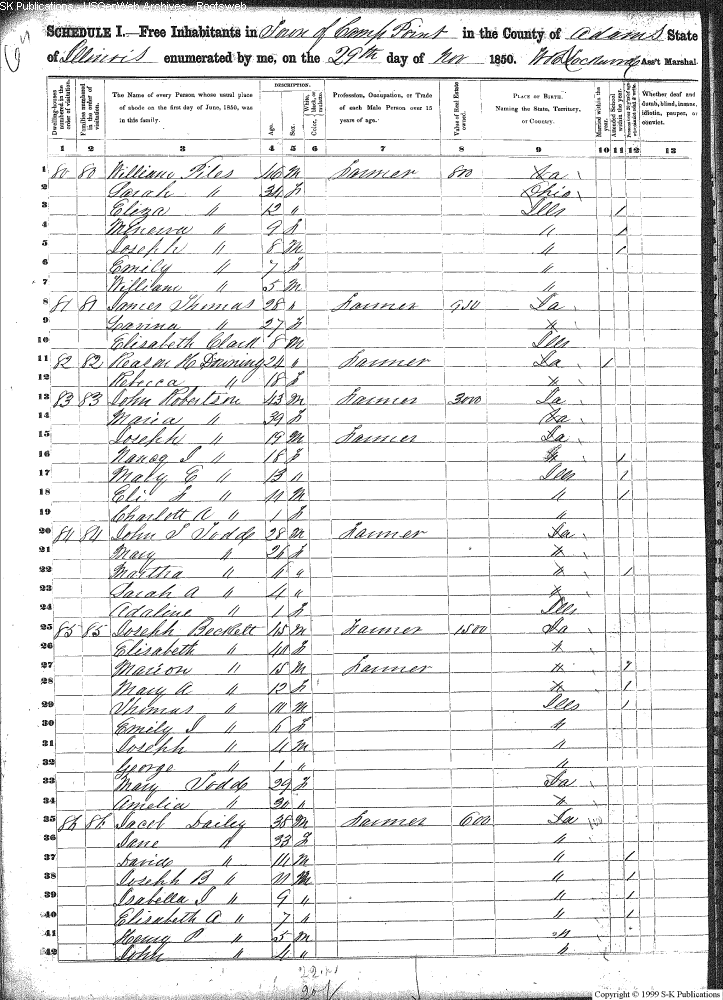 SK Publications - USGenWeb Archives - Rootsweb
SCHEDULE I. Free Inhabitants in Town of Camp Point in the County of Adams State
of Illinois enumerated by me, on the 29th day of Nov 1850. Ass't Marshal.
Dwelling-houses numbered in the order of visitation.
Families numbered in the order of visitation.
The Name of every Person whose usual place of abode on the first day of June, 1850, was in this family.
DESCRIPTION.
Age.
Sex.
Color, White, black, or mulatto.
Profession, Occupation, or Trade of each Male Person over 15 years of age.
Value of Real Estate owned.
PLACE OF BIRTH. Naming the State, Territory, or Country.
Married within the year.
Attended School within the year.
Whether deaf and dumb, blind, insane, idiotic, pauper, or convict.
1 2 3 4 5 6 7 8 9 10 11 12 13
1 80 80 William Piles 46 M Farmer 800
2 Sarah " 34 F Ohio
3 Eliza " 12 " Ills 1
4 Minerva " 9 F " 1
5 Joseph " 8 M " 1
6 Emily " 7 F "
7 William " 5 M "
8 81 81 James Thomas 28 " Farmer
9 Lavina " 27 F "
10 Elisabeth Clark 8 Ills
11 82 82 Reason H Downing 24 " Farmer 1
12 Rebecca " 18 F "
13 83 83 John Robertson 43 M Farmer 3000
14 Maria " 39 F
15 Joseph " 19 M Farmer
16 Nancy J " 18 F
17 Mary E " 13 " Ills 1
18 Eli " 11 M " 1
19 Charlott A " 1 F "
20 84 84 John Todd 28 M Farmer
21 Mary " 26 F "
22 Martha " 6 " " 1
23 Sarah A " 4 " "
24 Adaline " 1 F Ills
25 85 85 Joseph Beckett 45 M Farmer 1500
26 Elisabeth " 40 F "
27 Marion " 15 M Farmer "
28 Mary A " 12 F " 1
29 Thomas " 10 M Ills 1
30 Emily J " 6 F "
31 Joseph " 4 M "
32 George " 1 " "
33 Mary Todd 29 F
34 Amelia " 30 " "
35 86 86 Jacob Dailey 38 M Farmer 600
36 Jane " 33 F "
37 David " 14 M " 1
38 Joseph B " 11 M " 1
39 Isabella J " 9 " " 1
40 Elisabeth A " 7 " " 1
41 Henry P " 5 M "
42 John " 4 " "
Copyright © 1999 S-K Publications